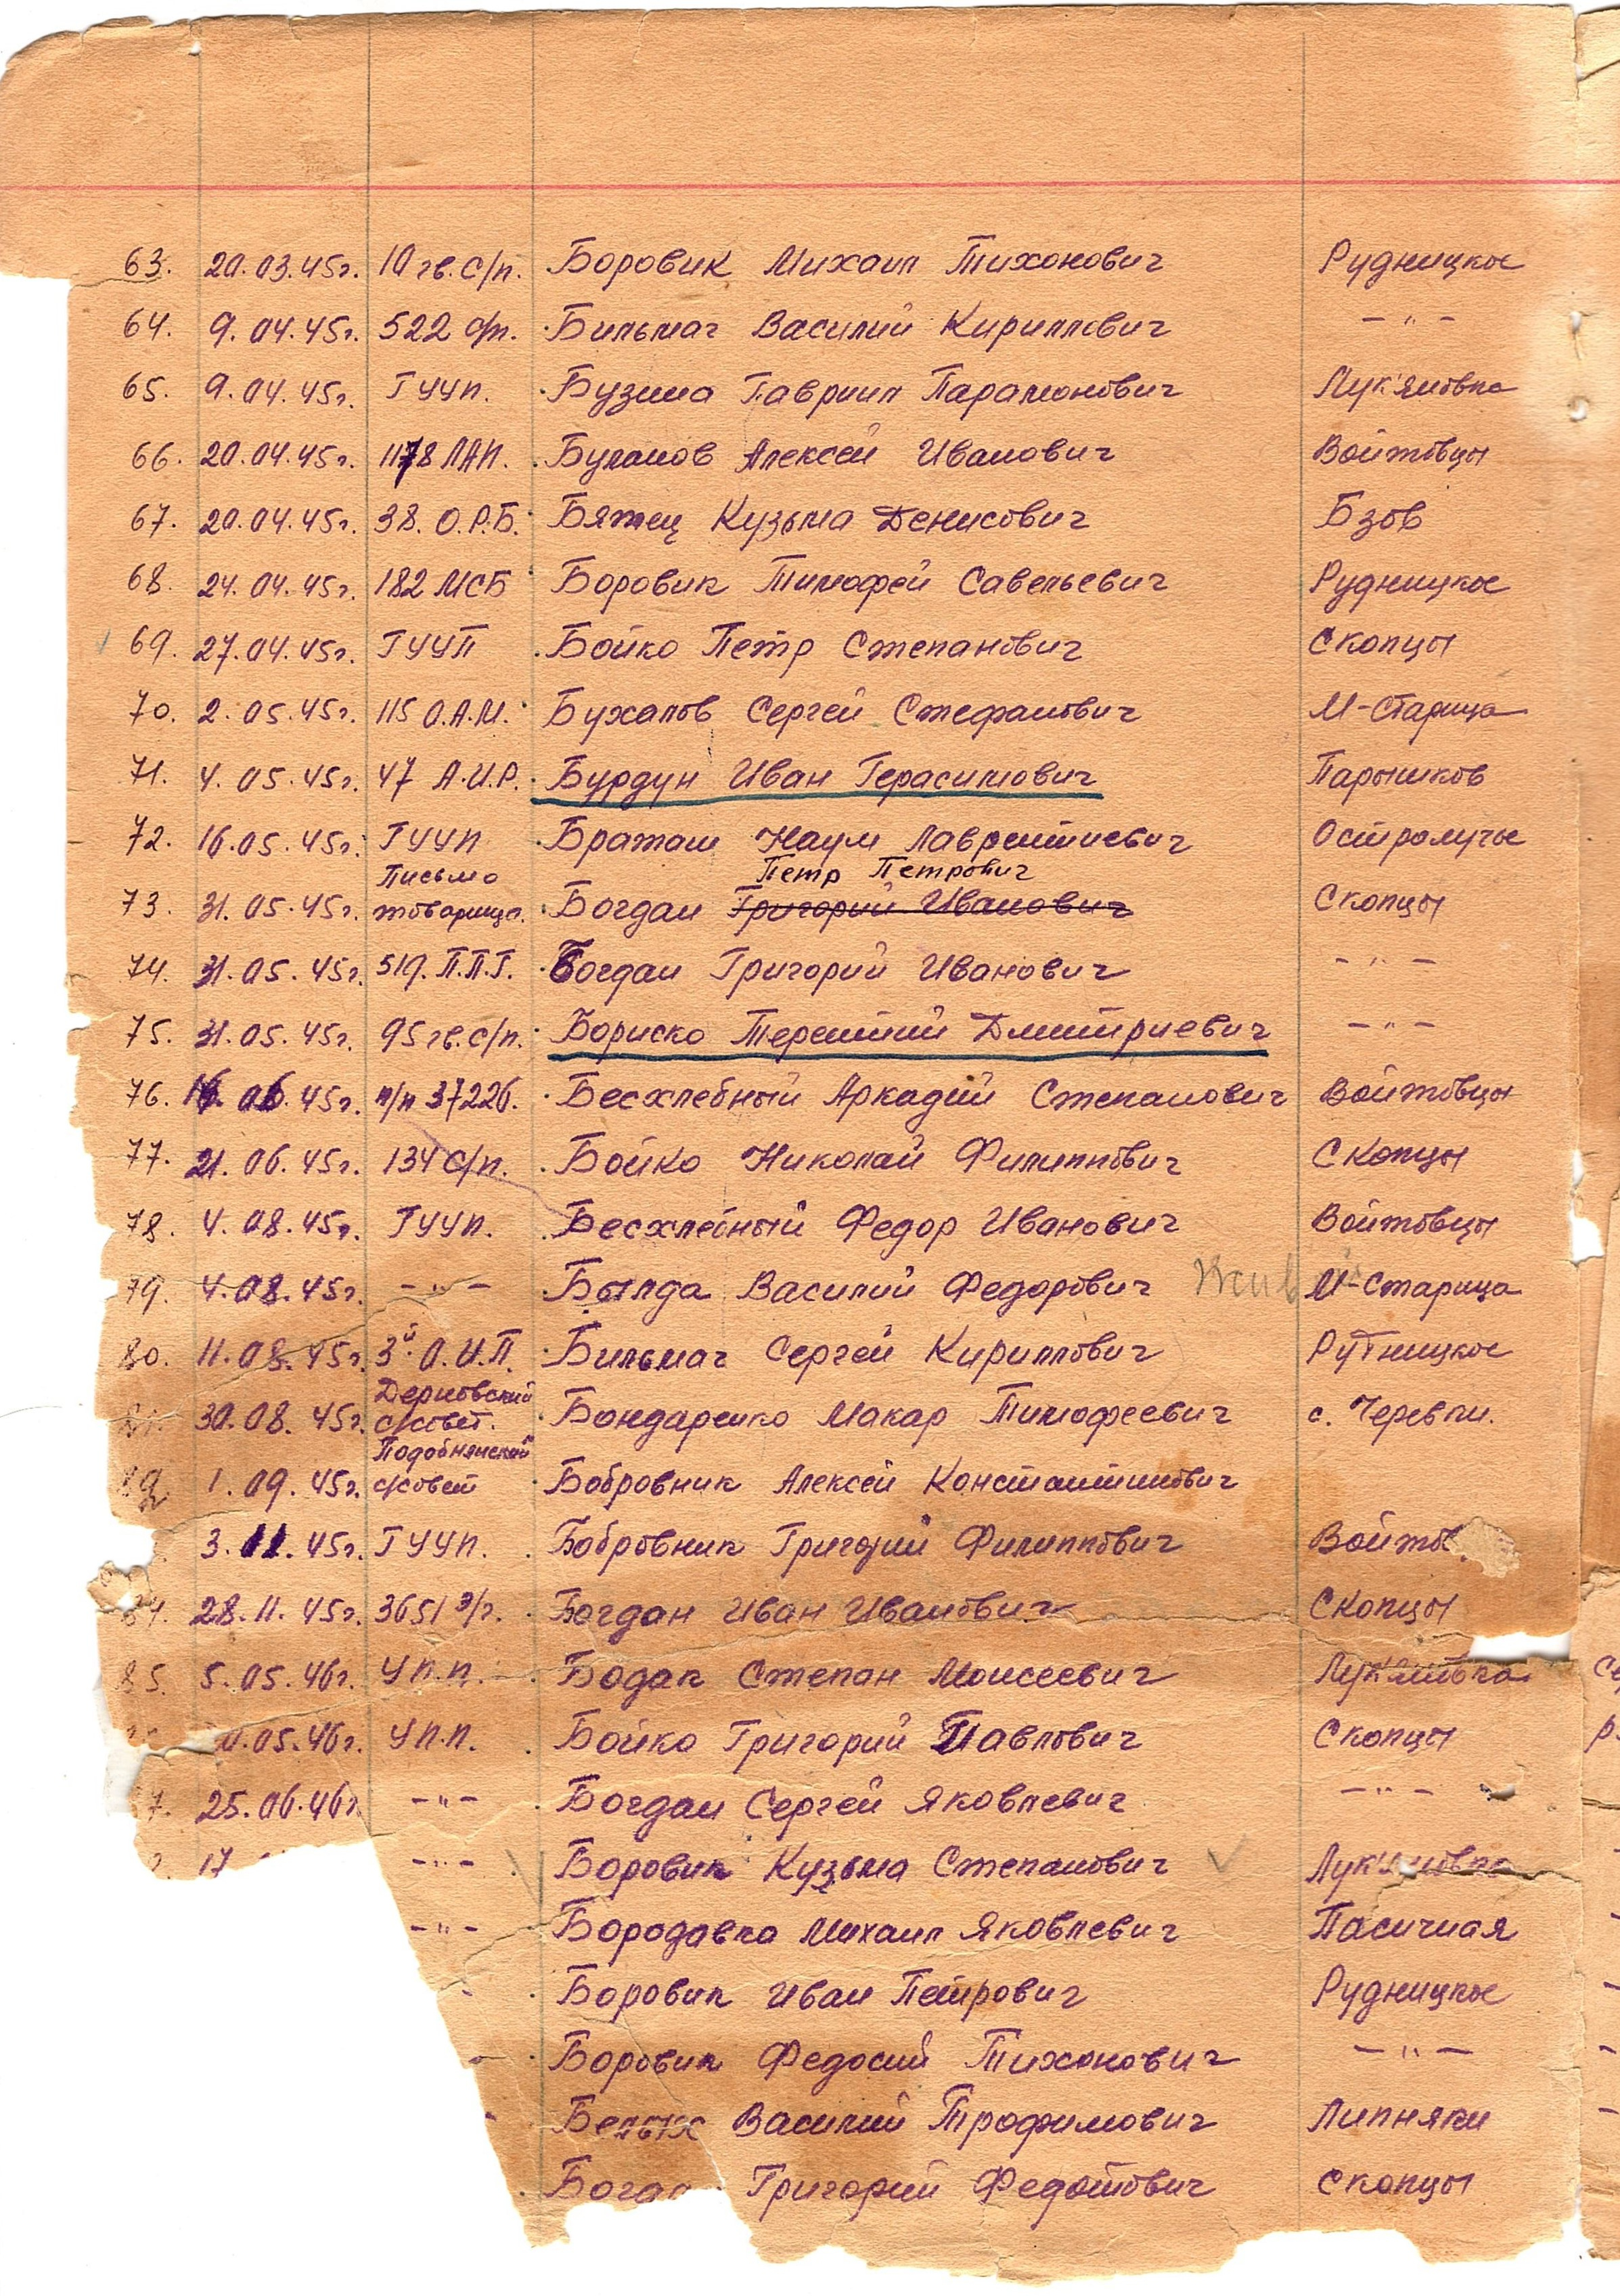 63. 20.03.45г. 10 гв. с/п. Боровик Михаил Тихонович Рудницкое
64. 9.04.45г. 522 с/п. Бильмач Василий Кириллович — " —
65. 9.04.45г. ГУУП. Бузина Гавриил Парамонович Лук'яновка
66. 20.04.45г. 1178 ЛАП. Буланов Алексей Иванович Войтовцы
67. 20.04.45г. 38. О.Р.Б. Бяжец Кузьма Денисович Бзов
68. 24.04.45г. 182 МСБ Боровик Тимофей Савельевич Рудницкое
69. 27.04.45г. ГУУП Бойко Петр Степанович Скопцы
70. 2.05.45г. 115 О.А.М. Бухалов Сергей Стефанович М-Старица
71. 4.05.45г. 47 А.И.Р. Бурдун Иван Герасимович Парышков
72. 16.05.45г. ГУУП Бражан Наум Лаврентиевич Остролучье
Письмо Петр Петрович
73. 31.05.45г. товарища. Богдан Григорий Иванович Скопцы
74. 31.05.45г. 519. П.П.Г. Богдан Григорий Иванович — " —
75. 31.05.45г. 95 гв. с/п. Бориско Терентий Дмитриевич — " —
76. 16.06.45г. п/п 37226. Бесхлебный Аркадий Степанович Войтовцы
77. 21.06.45г. 134 с/п. Бойко Николай Филиппович Скопцы
78. 4.08.45г. ГУУП. Бесхлебный Федор Иванович Войтовцы
79. 4.08.45г. — " — Былда Василий Федорович М-Старица
80. 11.08.45г. 3й О.И.П. Бильмач Сергей Кириллович Рутницкое
Дерновский
30.08.45г. с/совет. Бондаренко Макар Тимофеевич с. Черевки.
Подобнянский
1.09.45г. с/совет Бобровник Алексей Константинович
3.11.45г. ГУУП. Бобровник Григорий Филиппович Войтов
84. 28.11.45г. 3651 э/г. Богдан Иван Иванович Скопцы
85. 5.05.46г. УПП. Бодак Степан Моисеевич Лук'яновка
.05.46г. УПП. Бойко Григорий Павлович Скопцы
7. 25.06.46г — " — Богдан Сергей Яковлевич — " —
17 — " — Боровик Кузьма Степанович Лук'яновка
— " — Бородавка Михаил Яковлевич Пасичная
Боровик Иван Петрович Рудницкое
Боровик Федосий Тихонович — " —
Белых Василий Трофимович Липняки
Богда Григорий Федотович Скопцы